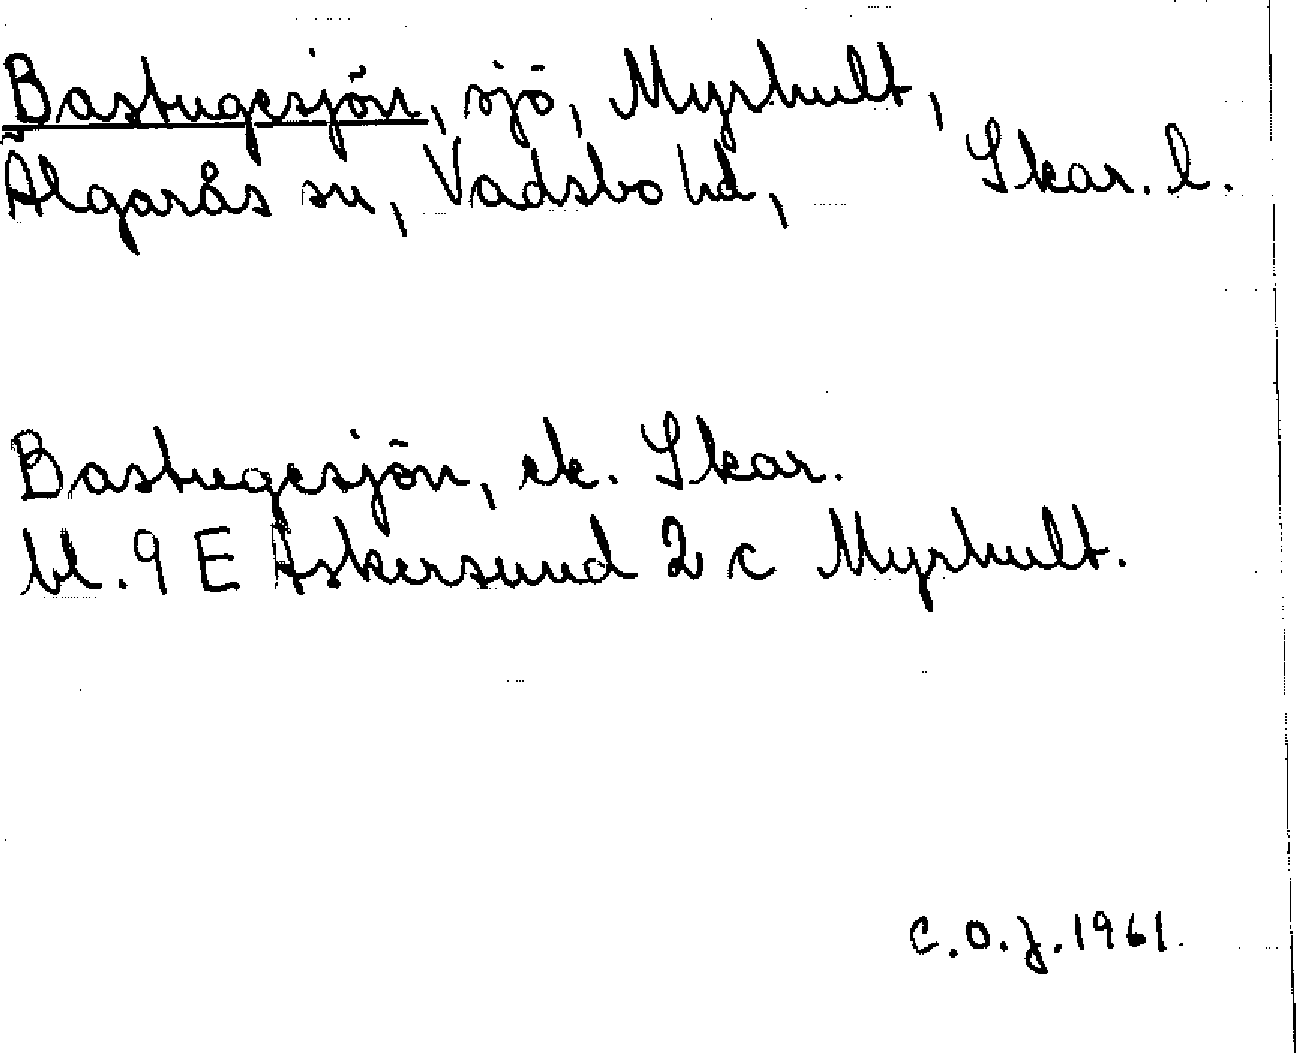 Bastugesjön, sjö, Myrhult,
Älgarås sn, Vadsbo hd, Skar. l.
Bastugesjön, ek. Skar.
bl. 9 E Askersund 2 c Myrhult.
C.O.J. 1961.